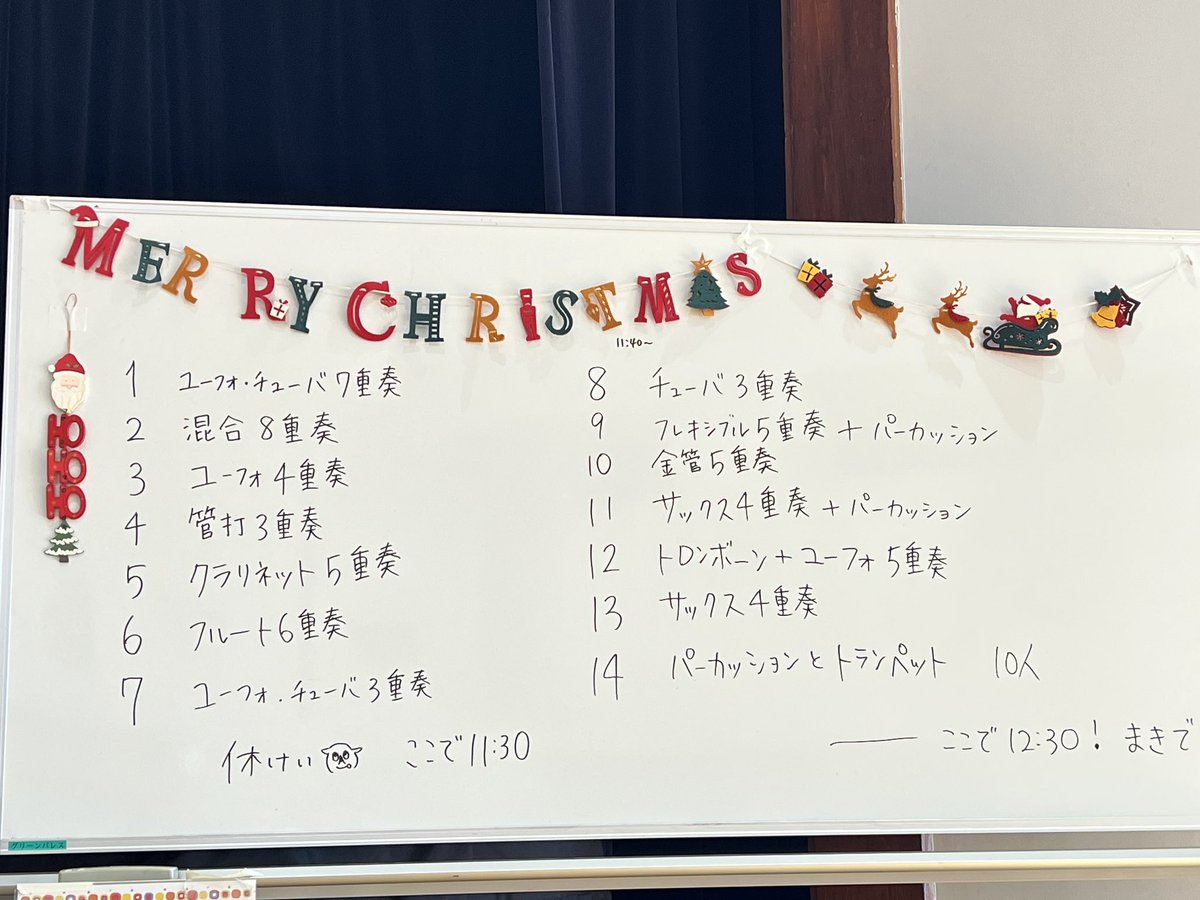 MERRY CHRISTMAS
HO
HO
HO
1 ユーフォ・チューバ7重奏
2 混合8重奏
3 ユーフォ4重奏
4 管打3重奏
5 クラリネット5重奏
6 フルート6重奏
7 ユーフォ・チューバ3重奏
休けい ここで11:30
11:40〜
8 チューバ3重奏
9 フレキシブル5重奏+パーカッション
10 金管5重奏
11 サックス4重奏+パーカッション
12 トロンボーン+ユーフォ5重奏
13 サックス4重奏
14 パーカッションとトランペット 10人
ここで12:30! まきで
グリーンパレス